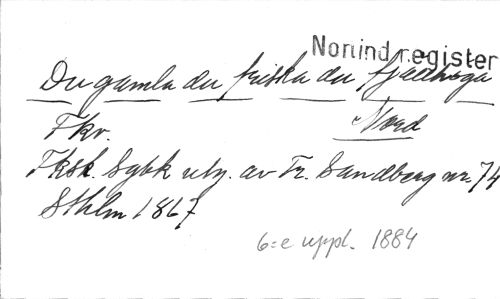 Norrind.register
Du gamla du friska du fjällhöga
Nord
Fkv.
Fksk. Sgbk utg. av Fr. Sandberg nr. 74
Sthlm 1867
6:e uppl. 1884